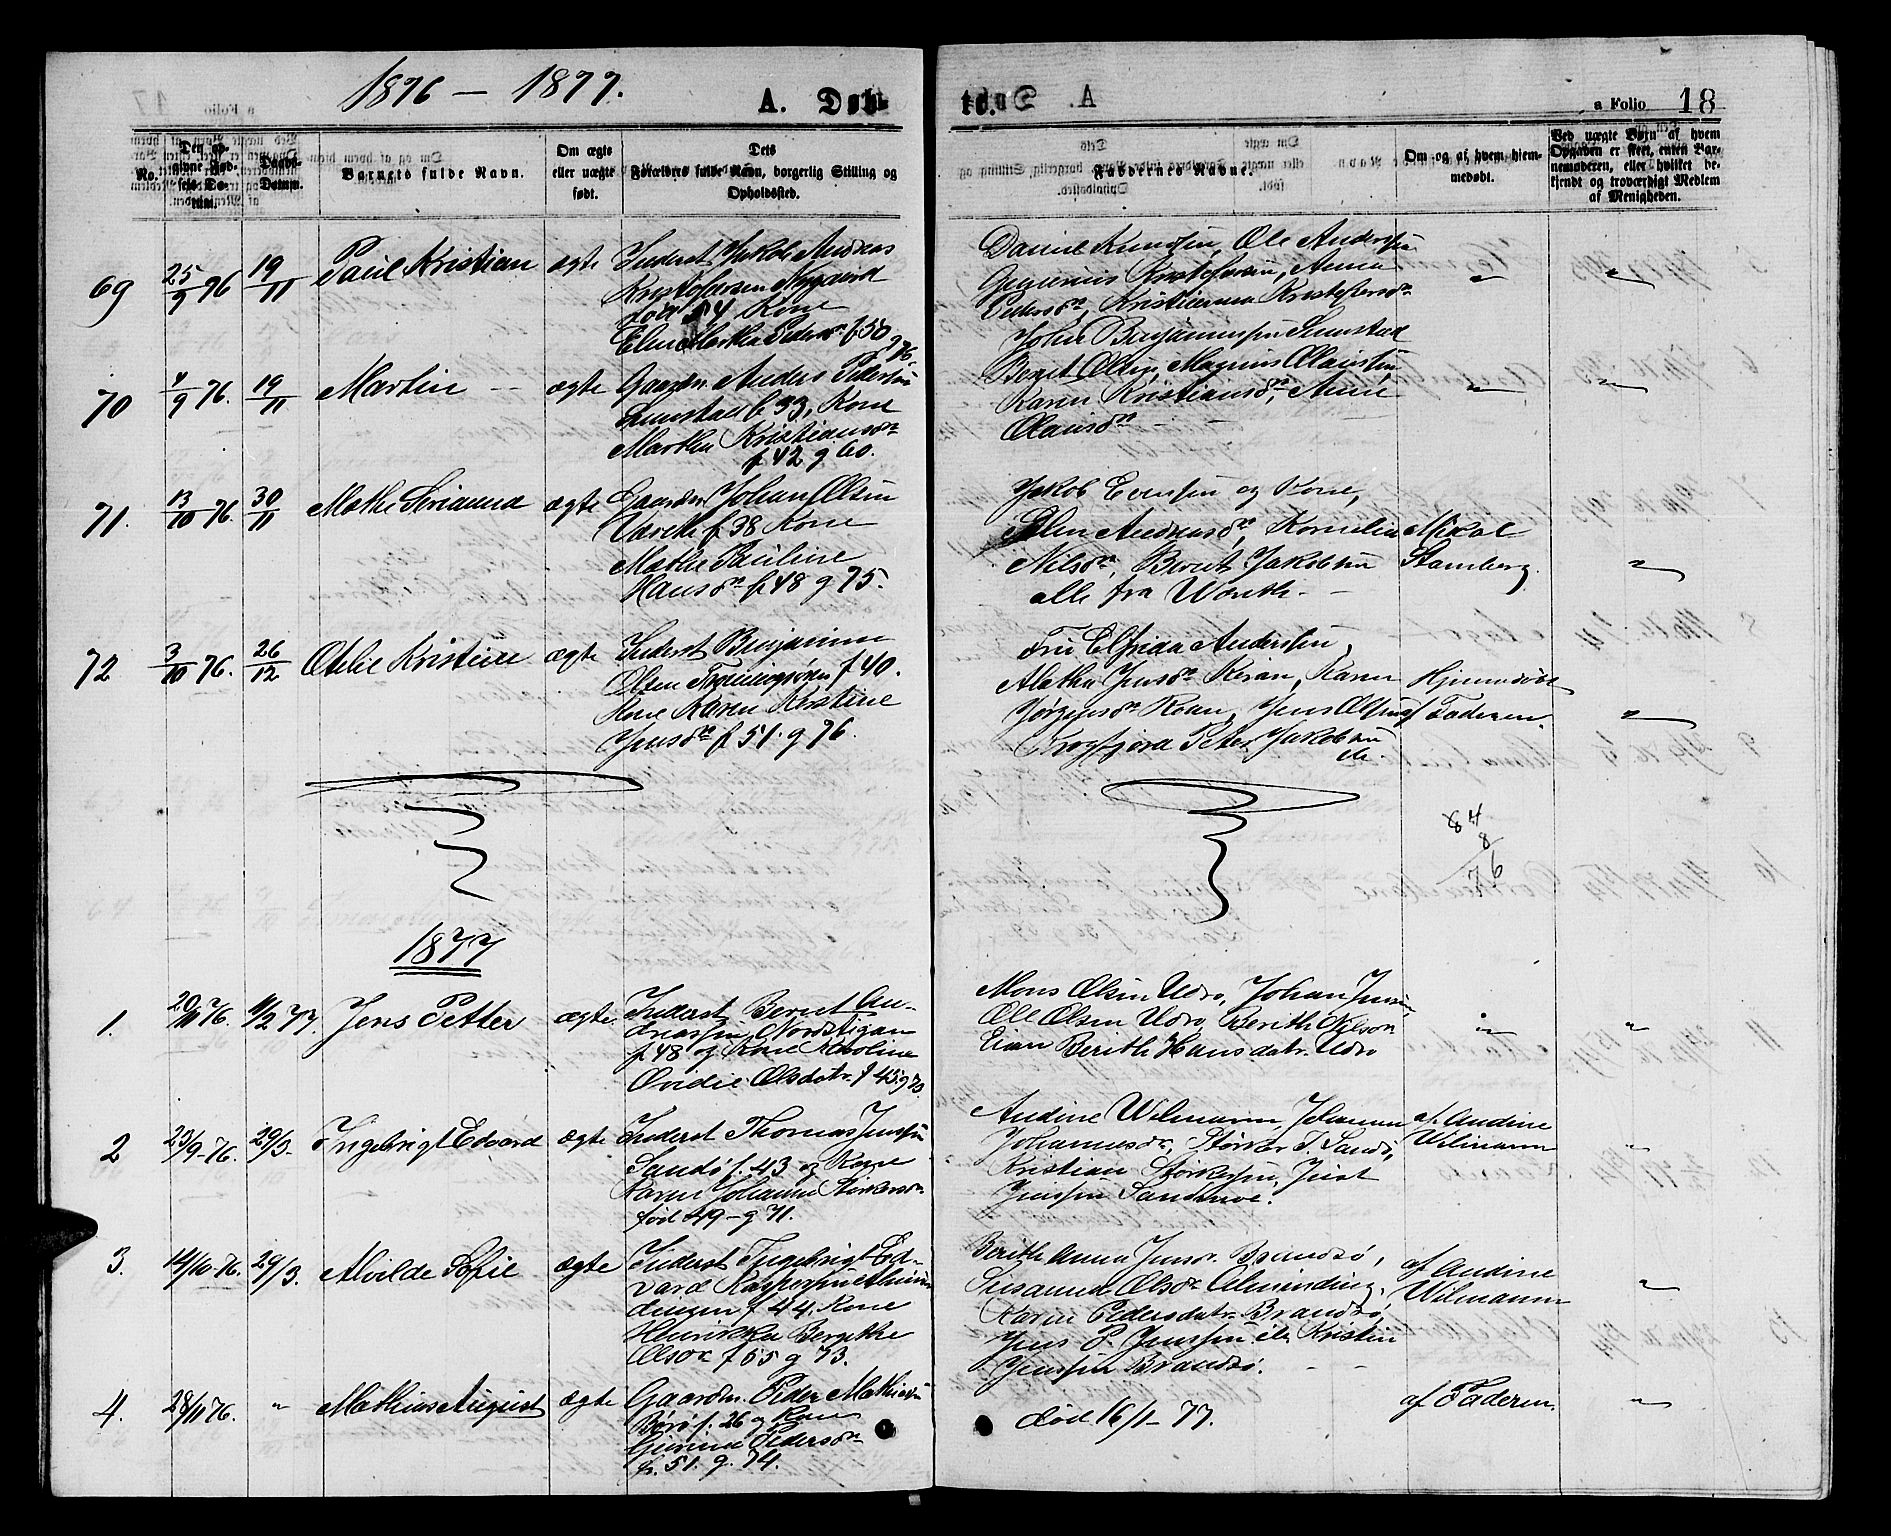 1876 – 1877.
A. Døb-
te.
a Folio 18
No.
Den op-
givne Fød-
sels Da-
tum.
Daabs-
Datum.
Barnets fulde Navn.
Om ægte
eller uægte
født.
Dets
Forældres fulde Navn, borgerlig Stilling og
Opholdssted.
Faddernes Navne.
Om og af hvem hjem-
medøbt.
Ved uægte Børn af hvem
Opgaven er skeet, enten Bar-
nemoderen, eller hvilket be-
kjendt og troværdigt Medlem
af Menigheden.
69 25/9 76 19/11 Paul Kristian ægte Inderst Jakob Andreas
Kristofersen
født 54 Kone
Martha Pedersdr f 50
g 76.
Daniel Knudsen, Ole Andersen
Kristofersen, Anna
Pedersdr, Kristianna Kristofersdr
70 4/9 76. 19/11 Martin ægte Gaardm. Anders Pedersen
f 33, Kone
Martha Kristiansdr
f 42 g 60.
John Benjaminsen
Berit Olsen, Magnus Olausen,
Karen Kristiansdr, Anne
Olausdr
71. 13/10 76. 30/11 Mathe ægte Gaardm. Johan Olsen
f 38 Kone
Mathe Pauline
Hansdr f 48 g 75.
Jakob Evensen og Kone,
Elen Andreasdr, Kornelia
Nilsdr, Berit Jakobsen
alle fra
Mikal
Stamberg.
72 3/10 76. 26/12 Otelie Kristine ægte Inderst Benjamin
Olsen f 40.
Kone Karen Kirstine
Jensdr f 51. g 76.
Fru Elfrida Andersen,
Aletha Jensdr Kiran, Karen
Jørgensdr Roan, Jens Olsen
Peter Jakobsen
do.
Hjemmedøbt
af Faderen.
84
8
76
1877
1. 20/11 76. 11/2 77. Jens Petter ægte Inderst Bernt An-
dreassen Nordstigan
f 48 og Kone Karoline
Ovidie Olsdatr. f 45 g 73
Mons Olsen Udro, Johan Jensen,
Ole Olsen Udro, Berith Nilsdr
Eian Berith Hansdatr. Udro
2 23/9-76. 29/3- Ingebrigt Edvard ægte Inderst Thomas Jensen
Sandø f. 43 og Kone
Karen Johanna Størkersdr.
født 49 – g 71.
Andine Wilmann, Johanna
Johannesdr, Størker J. Sandø,
Kristian Størkersen, Just
Jensen
af Andine
Wilmann
3. 14/10-76. 29/3. Alvilde Sofie ægte Inderst Ingebrigt Ed-
vard Kaspersen Almin
dingen f 44. Kone
Henrikka Bergitte
Olsdr f 55 g 73.
Berith Anna Jensdr. Brandsø,
Susanna Olsdr Alminding,
Karen Pedersdatr. Brandsø,
Jens P. Jenssen Kristin
Jenssen Brandsø.
af Andine
Wilmann
4. 28/11 76. " Mathias August ægte Gaardm. Peder Mathiasen
Børø f. 26 og Kone
Gurine Pedersdr
f. 51. g. 74.
død 16/1–77.
af Faderen.